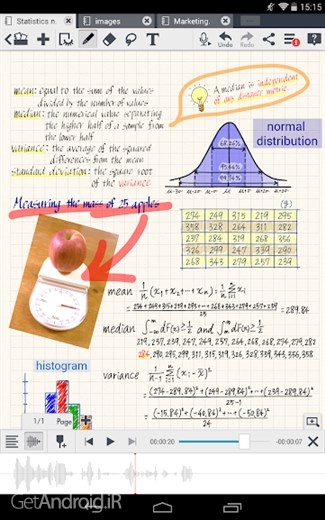 15:15
Statistics n.
images
Marketing.
Undo
Redo
mean: equal to the sum of the values
divided by the number of values
median: the numerical value separating
the higher half of a sample from
the lower half
variance: the average of the squared
differences from the mean
standard deviation: the square root
of the variance
A median is independent
of any distance metric.
68.26%
95.44%
normal
distribution
Measuring the mass of 25 apples
(g)
274 249 315 219 295
358 328 264 311 282
237 284 319 268 356
326 299 247 339 290
268 343 279 257 239
mean 1/n (x₁+x₂+···+xₙ) = 1/n Σ xᵢ
= 289.84
median ∫dF(x) ≥ 1/2 and ∫dF(x) ≥ 1/2
219, 237, 239, 247, 249, 257, 264, 268, 268, 274, 279, 282
284, 290, 295, 299, 311, 315, 319, 326, 328, 339, 343, 356, 358
variance 1/n-1 Σ (xᵢ - x̄)²
= (274-289.84)²+(249-289.84)²+···+(239-289.84)² / 25-1
= (-15.84)²+(-40.84)²+···+(-50.84)² / 24
histogram
1/1 Page
00:00:20
-00:00:07
GetAndroid.iR